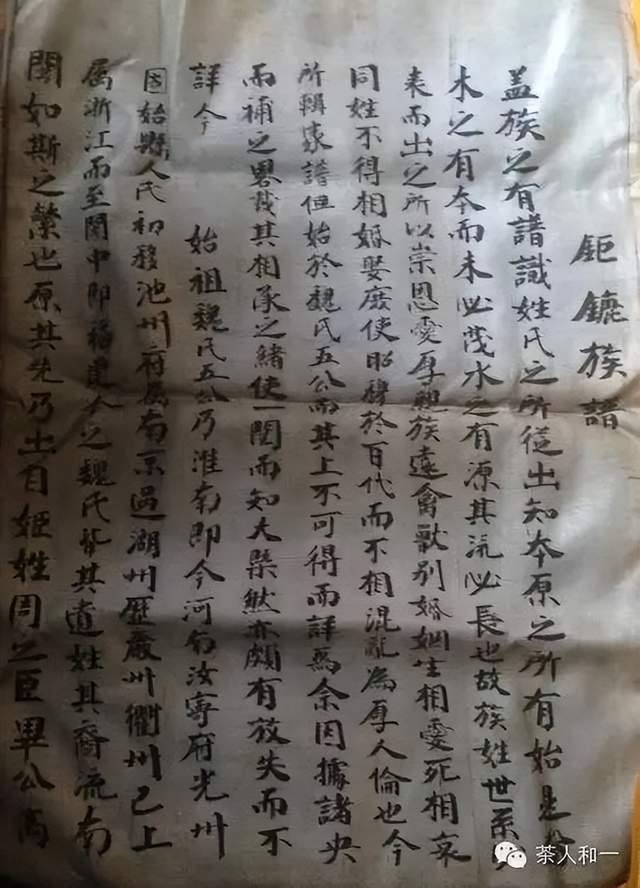 鉅鏕族譜
盖族之有譜識姓氏之所從出知本原之所有始是於
木之有本而末必茂水之有源其流必長也故族姓世系
表而出之所以崇恩愛厚親族遠禽獸別婚姻生相愛死相哀
同姓不得相婚娶庶使昭穆於百代而不相混亂為厚人倫也今
所輯家譜但始於魏氏五公而其上不可得而詳焉余因據諸央
而補之畧載其相承之緒使一閱而知大槩然亦頗有放失而不
詳今 始祖魏氏五公乃淮南即今河南汝寧府光州
固始縣人氏初移池州府属南京過湖州歷嚴州衢州已上
属浙江而至閩中即福建人之魏氏皆其遺姓其裔流南
閩如斯之繁也原其先乃出自姬姓周之臣畢公高
茶人和一